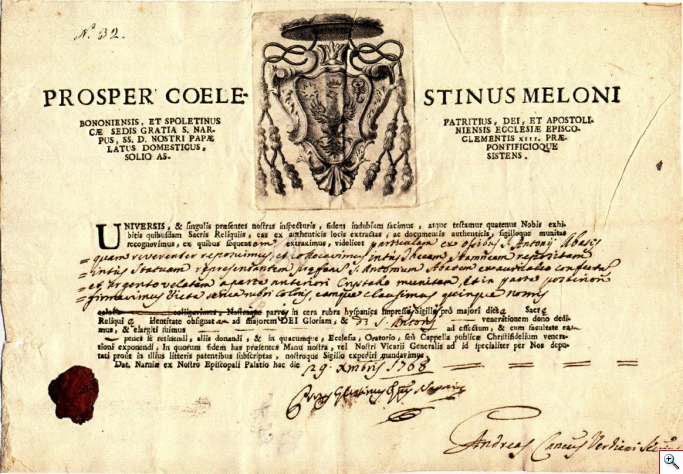 N.° 32.
PROSPER COELE-
STINUS MELONI
BONONIENSIS, ET SPOLETINUS
CÆ SEDIS GRATIA S. NAR-
PUS, SS. D. NOSTRI PAPÆ
LATUS DOMESTICUS,
SOLIO AS-
PATRITIUS, DEI, ET APOSTOLI-
NIENSIS ECCLESIÆ EPISCO-
CLEMENTIS XIII. PRÆ-
PONTIFICIOQUE
SISTENS.
UNIVERSIS, & singulis præsentes nostras inspecturis, fidem indubiam facimus, atque testamur quatenus Nobis exhi-
bitis quibusdam Sacris Reliquiis, eas ex authenticis locis extractas, ac documentis authenticis, sigillisque munitas
recognovimus, ex quibus sequentem extraximus, videlicet particulam ex ossibus S. Antonij Abatis
quam reverenter reposuimus, et collocavimus intus thecam stamneam repositam
intus Statuam representantem S. Antonium Abatem ex
et Argento velatam a parte anteriori Crystallo munitam, et in parte posteriori
firmavimus cera rubri coloris, eamque clausimus quinque
parvo in cera rubra hyspanica impresso Sigillo pro majori dictæ Sacræ
Reliquiæ identitate obsignat ad majorem DEI Gloriam, & S. Antonij venerationem dono dedi-
mus, & elargiti sumus ad effectum, & cum facultate ea
penes se retinendi, aliis donandi, & in quacumque, Ecclesia, Oratorio, seu Cappella publicæ Christifidelium venera-
tioni exponendi. In quorum fidem has præsentes Manu nostra, vel Nostri Vicarii Generalis ad id specialiter per Nos depu-
tati prout in illius litteris patentibus subscriptas, nostroque Sigillo expediri mandavimus.
Dat. Narniæ ex Nostro Episcopali Palatio hac die 29 Xmbris 1768
Andreas